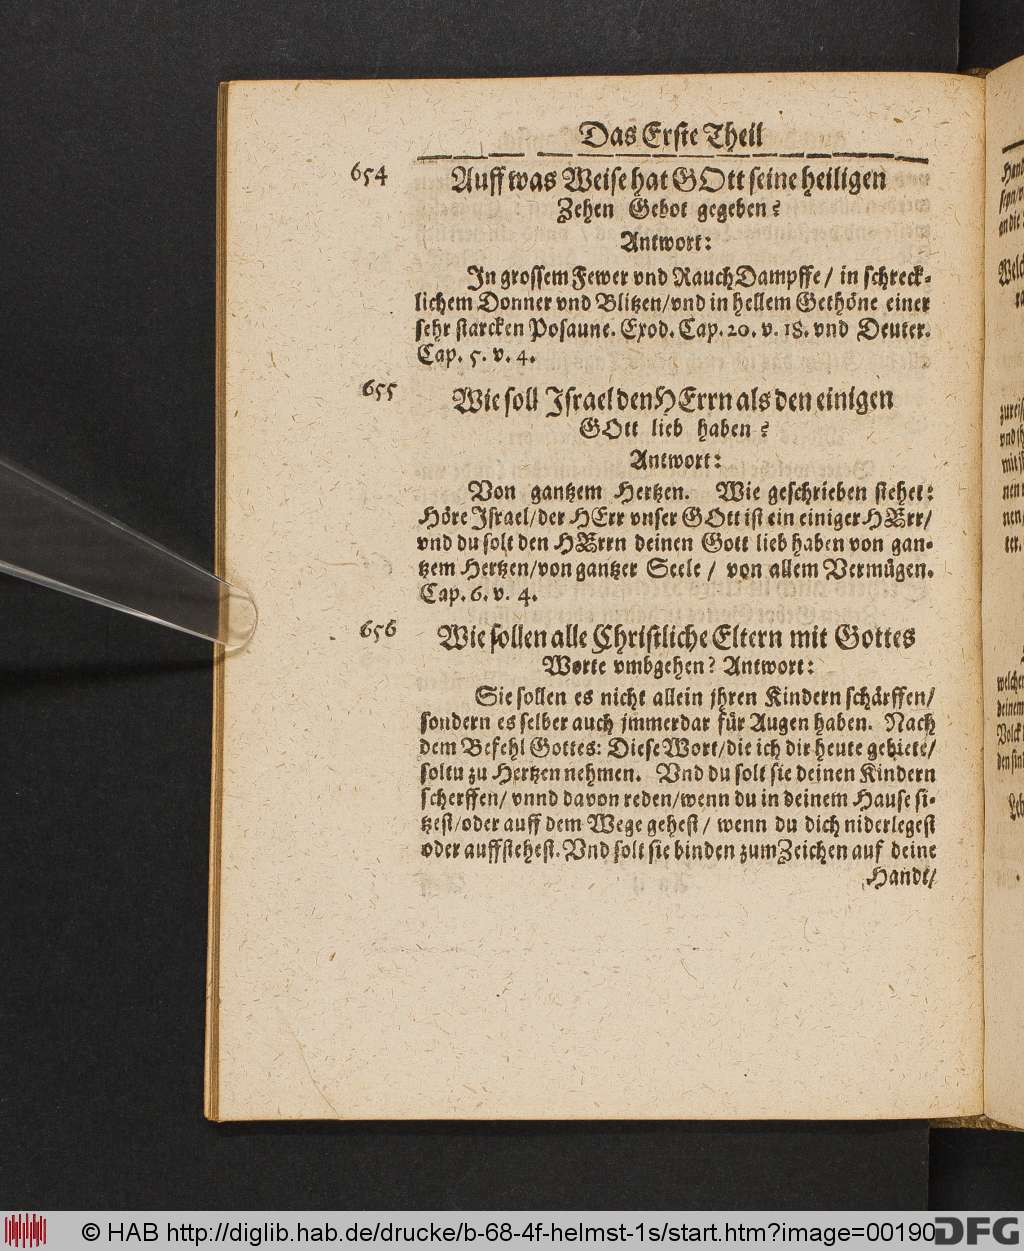 Das Erste Theil
654 Auff was Weise hat GOtt seine heiligen
Zehen Gebot gegeben?
Antwort:
In grossem Fewer vnd Rauch Dampffe/ in schreck-
lichem Donner vnd Blitzen/vnd in hellem Gethöne einer
sehr starcken Posaune. Exod. Cap. 20. v. 18. vnd Deuter.
Cap. 5. v. 4.
655 Wie soll Israel den HErrn als den einigen
GOtt lieb haben?
Antwort:
Von gantzem Hertzen. Wie geschrieben stehet:
Höre Israel/der HErr vnser GOtt ist ein einiger HErr/
vnd du solt den HErrn deinen Gott lieb haben von gan-
tzem Hertzen/von gantzer Seele / von allem Vermügen.
Cap. 6. v. 4.
656 Wie sollen alle Christliche Eltern mit Gottes
Worte vmbgehen? Antwort:
Sie sollen es nicht allein jhren Kindern schärffen/
sondern es selber auch jmmerdar für Augen haben. Nach
dem Befehl Gottes: Diese Wort/die ich dir heute gebiete/
soltu zu Hertzen nehmen. Vnd du solt sie deinen Kindern
scherffen/ vnnd davon reden/wenn du in deinem Hause si-
tzest/oder auff dem Wege gehest/ wenn du dich niderlegest
oder auffstehest. Vnd solt sie binden zum Zeichen auf deine
Handt/
© HAB http://diglib.hab.de/drucke/b-68-4f-helmst-1s/start.htm?image=00190
DFG